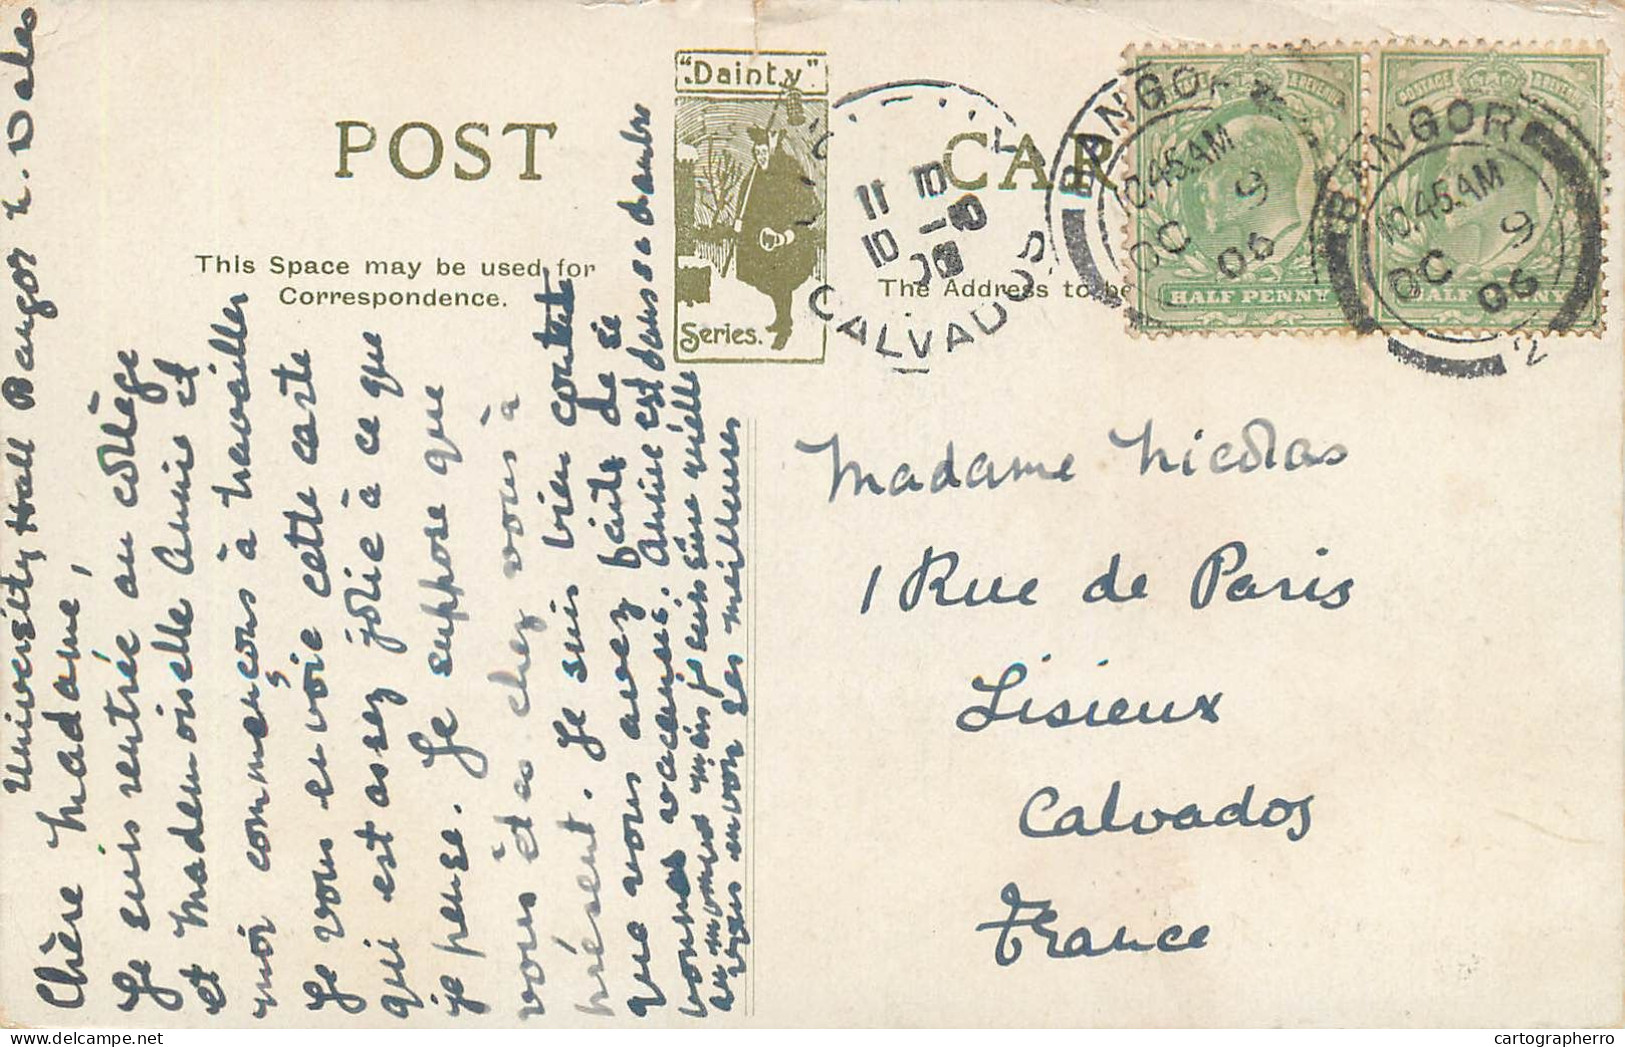 University Hall Bangor N. Wales
Chère Madame,
Je suis rentrée au collège
et Mademoiselle Annie et
moi commençons à travailler
Je vous envoie cette carte
qui est assez jolie à ce que
je pense. Je suppose que
vous êtes chez vous à
présent. Je suis bien contente
que vous avez faite de si
bonnes vacances. Annie est dans sa chambre
au moment mais je suis sûre qu'elle
vous envoie ses meilleures
POST CARD
"Dainty"
Series.
This Space may be used for
Correspondence.
The Address to be
11 10
10 -10
06
CALVADOS
BANGOR
10.45 AM
OC 9
06
BANGOR
10.45 AM
OC 9
06
2
POSTAGE REVENUE
HALF PENNY
POSTAGE REVENUE
HALF PENNY
Madame Nicolas
1 Rue de Paris
Lisieux
Calvados
France
cartographerro